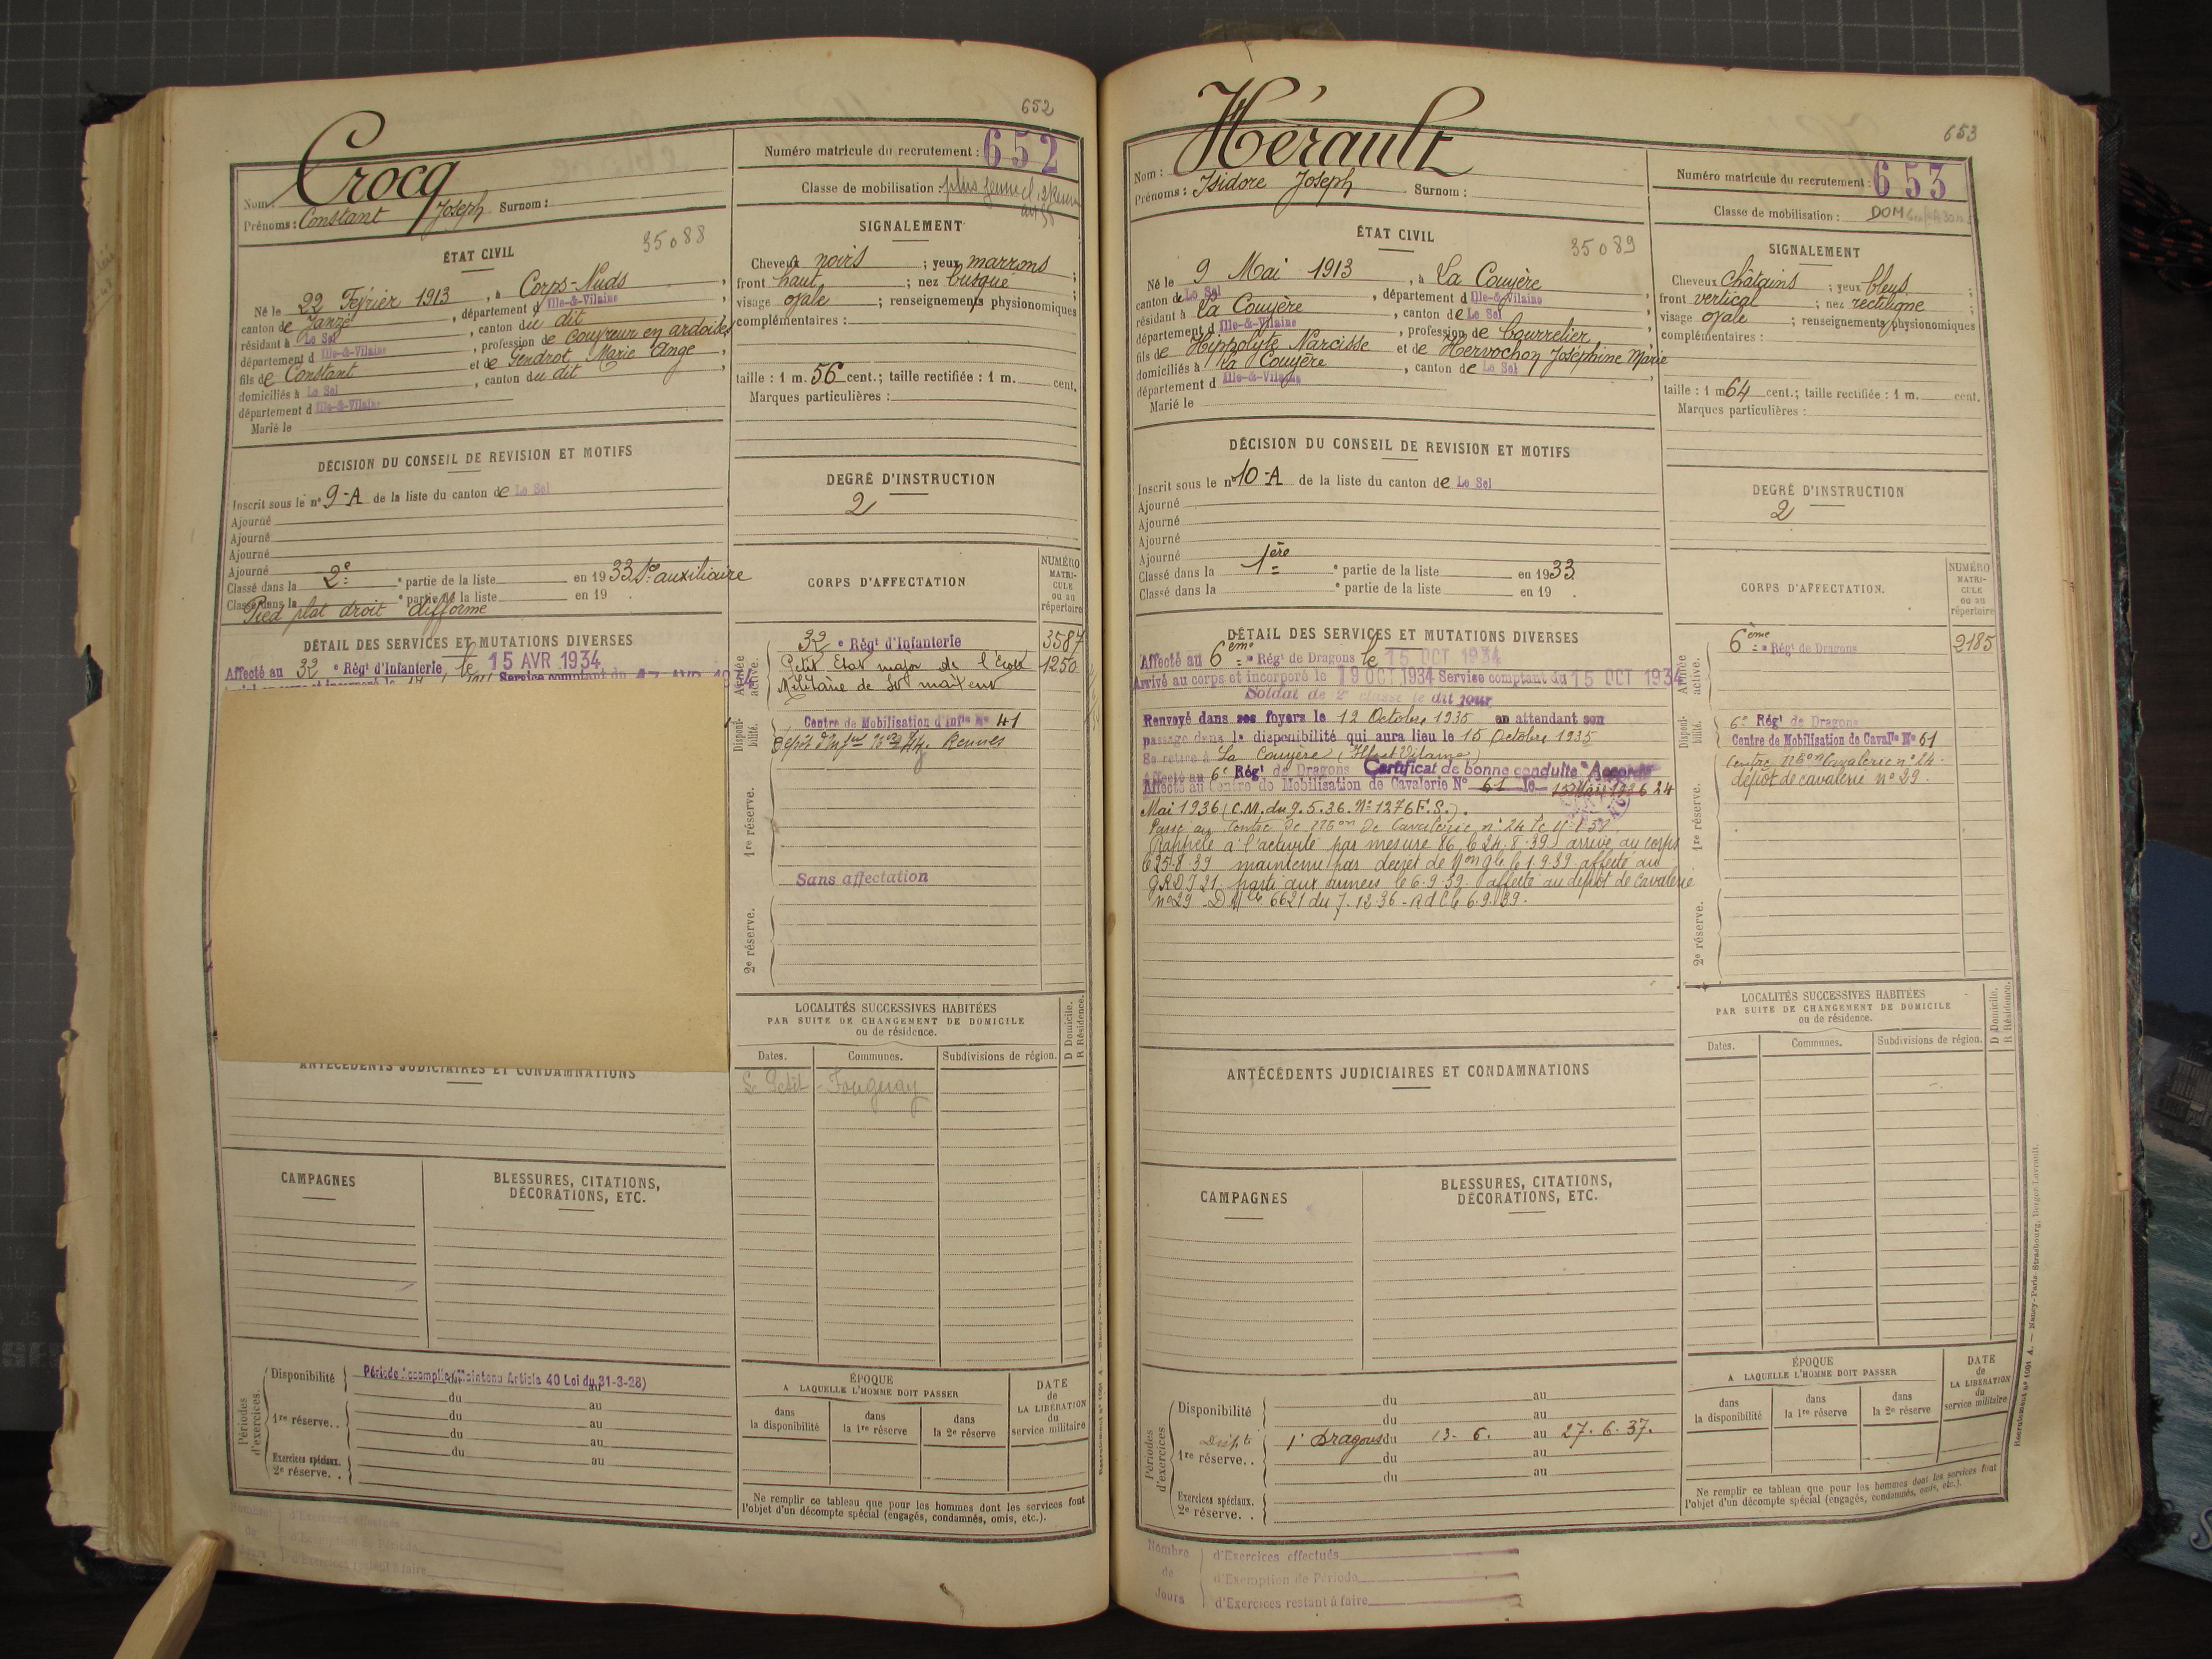 652
Crocq
Nom
Prénoms : Constant Joseph Surnom :
Numéro matricule du recrutement : 652
Classe de mobilisation : plus jeune cl.
ÉTAT CIVIL
35088
Né le 22 Février 1913, à Corps-Nuds,
canton de Janzé, département d Ille-&-Vilaine
résidant à Le Sel, canton du dit
département d Ille-&-Vilaine, profession de couvreur en ardoises
fils de Constant et de Gendrot Marie Ange,
domiciliés à Le Sel, canton du dit,
département d Ille-&-Vilaine
Marié le
SIGNALEMENT
Cheveux noirs ; yeux marrons ;
front haut ; nez busqué ;
visage ovale ; renseignements physionomiques
complémentaires :
taille : 1 m. 56 cent.; taille rectifiée : 1 m. cent.
Marques particulières :
DÉCISION DU CONSEIL DE REVISION ET MOTIFS
Inscrit sous le n° 9-A de la liste du canton de Le Sel
Ajourné
Ajourné
Ajourné
Ajourné
Classé dans la 2e partie de la liste en 1933 Sce auxiliaire
Classé dans la e partie de la liste en 19 .
Pied plat droit difforme
DEGRÉ D'INSTRUCTION
2
DÉTAIL DES SERVICES ET MUTATIONS DIVERSES
Affecté au 32 e Régt d'Infanterie le 15 AVR 1934
CORPS D'AFFECTATION
NUMÉRO MATRICULE ou au répertoire
Armée active.
32 e Régt d'Infanterie 3587
Petit Etat major de l'école 1250
Militaire de St maixent
Disponibilité.
Centre de Mobilisation d'Infie N° 41
Rennes
1re réserve.
Sans affectation
2e réserve.
LOCALITÉS SUCCESSIVES HABITÉES
PAR SUITE DE CHANGEMENT DE DOMICILE
ou de résidence.
D Domicile.
R Résidence.
Dates. Communes. Subdivisions de région.
Petit Fougeray
ANTÉCÉDENTS JUDICIAIRES ET CONDAMNATIONS
CAMPAGNES
BLESSURES, CITATIONS,
DÉCORATIONS, ETC.
Périodes d'exercices.
Disponibilité Période accomplie (Maintenu Article 40 Loi du 31-3-28)
du au
1re réserve. . du au
du au
Exercices spéciaux. du au
2e réserve. .
ÉPOQUE
A LAQUELLE L'HOMME DOIT PASSER
dans la disponibilité
dans la 1re réserve
dans la 2e réserve
DATE de LA LIBÉRATION du service militaire
Ne remplir ce tableau que pour les hommes dont les services font
l'objet d'un décompte spécial (engagés, condamnés, omis, etc.).
Nombre de Jours
d'Exercices effectués
d'Exemption de Période
d'Exercices restant à faire
653
Hérault
Nom :
Prénoms : Isidore Joseph Surnom :
Numéro matricule du recrutement : 653
Classe de mobilisation : DOM
ÉTAT CIVIL
35089
Né le 9 Mai 1913, à La Couyère
canton de Le Sel, département d Ille-&-Vilaine,
résidant à La Couyère, canton de Le Sel
département d Ille-&-Vilaine, profession de bourrelier,
fils de Hippolyte Narcisse et de Hervochon Joséphine Marie
domiciliés à la Couyère, canton de Le Sel,
département d Ille-&-Vilaine
Marié le
SIGNALEMENT
Cheveux chatains ; yeux bleus ;
front vertical ; nez rectiligne ;
visage ovale ; renseignements physionomiques
complémentaires :
taille : 1 m 64 cent.; taille rectifiée : 1 m. cent.
Marques particulières :
DÉCISION DU CONSEIL DE REVISION ET MOTIFS
Inscrit sous le n° 10-A de la liste du canton de Le Sel
Ajourné
Ajourné
Ajourné
Ajourné
Classé dans la 1ère e partie de la liste en 1933
Classé dans la e partie de la liste en 19 .
DEGRÉ D'INSTRUCTION
2
DÉTAIL DES SERVICES ET MUTATIONS DIVERSES
Affecté au 6ème Régt de Dragons le 15 OCT 1934
Arrivé au corps et incorporé le 19 OCT 1934 Service comptant du 15 OCT 1934
Soldat de 2e classe le dit jour
Renvoyé dans ses foyers le 12 Octobre 1935 en attendant son
passage dans la disponibilité qui aura lieu le 15 Octobre 1935
Se retire à La Couyère (Ille et Vilaine)
Affecté au 6e Régt de Dragons Certificat de bonne conduite "Accordé"
Affecté au Centre de Mobilisation de Cavalerie N° 61 le 24
Mai 1936 (C.M. du 9.5.36. N° 1276 F.S.).
Passé au Centre de Mson de Cavalerie n° 24 le
Rappelé à l'activité par mesure 86, le 24.8.39 arrivé au corps
le 25.8.39 maintenu par décret de Mon gle le 1.9.39 affecté au
GRDI 21 parti aux armées le 6.9.39. affecté au dépôt de cavalerie
n° 29 6621 du 7.12.36 - adl 6.9.39.
CORPS D'AFFECTATION.
NUMÉRO MATRICULE ou au répertoire
Armée active.
6ème Régt de Dragons 2185
Disponibilité.
6e Régt de Dragons
Centre de Mobilisation de Cavalie N° 61
Centre Mson Cavalerie n° 24.
dépôt de cavalerie n° 29.
1re réserve.
2e réserve.
LOCALITÉS SUCCESSIVES HABITÉES
PAR SUITE DE CHANGEMENT DE DOMICILE
ou de résidence.
D Domicile.
R Résidence.
Dates. Communes. Subdivisions de région.
ANTÉCÉDENTS JUDICIAIRES ET CONDAMNATIONS
CAMPAGNES
BLESSURES, CITATIONS,
DÉCORATIONS, ETC.
Périodes d'exercices
Disponibilité du au
du au
1re réserve. . 1er Dragons du 13. 6. au 27. 6. 37.
du au
du au
Exercices spéciaux.
2e réserve. .
ÉPOQUE
A LAQUELLE L'HOMME DOIT PASSER
dans la disponibilité
dans la 1re réserve
dans la 2e réserve
DATE de LA LIBÉRATION du service militaire
Ne remplir ce tableau que pour les hommes dont les services font
l'objet d'un décompte spécial (engagés, condamnés, omis, etc.).
Nombre de Jours
d'Exercices effectués
d'Exemption de Période
d'Exercices restant à faire
Recrutement n° 1001 A. — Nancy-Paris-Strasbourg, Berger-Levrault.